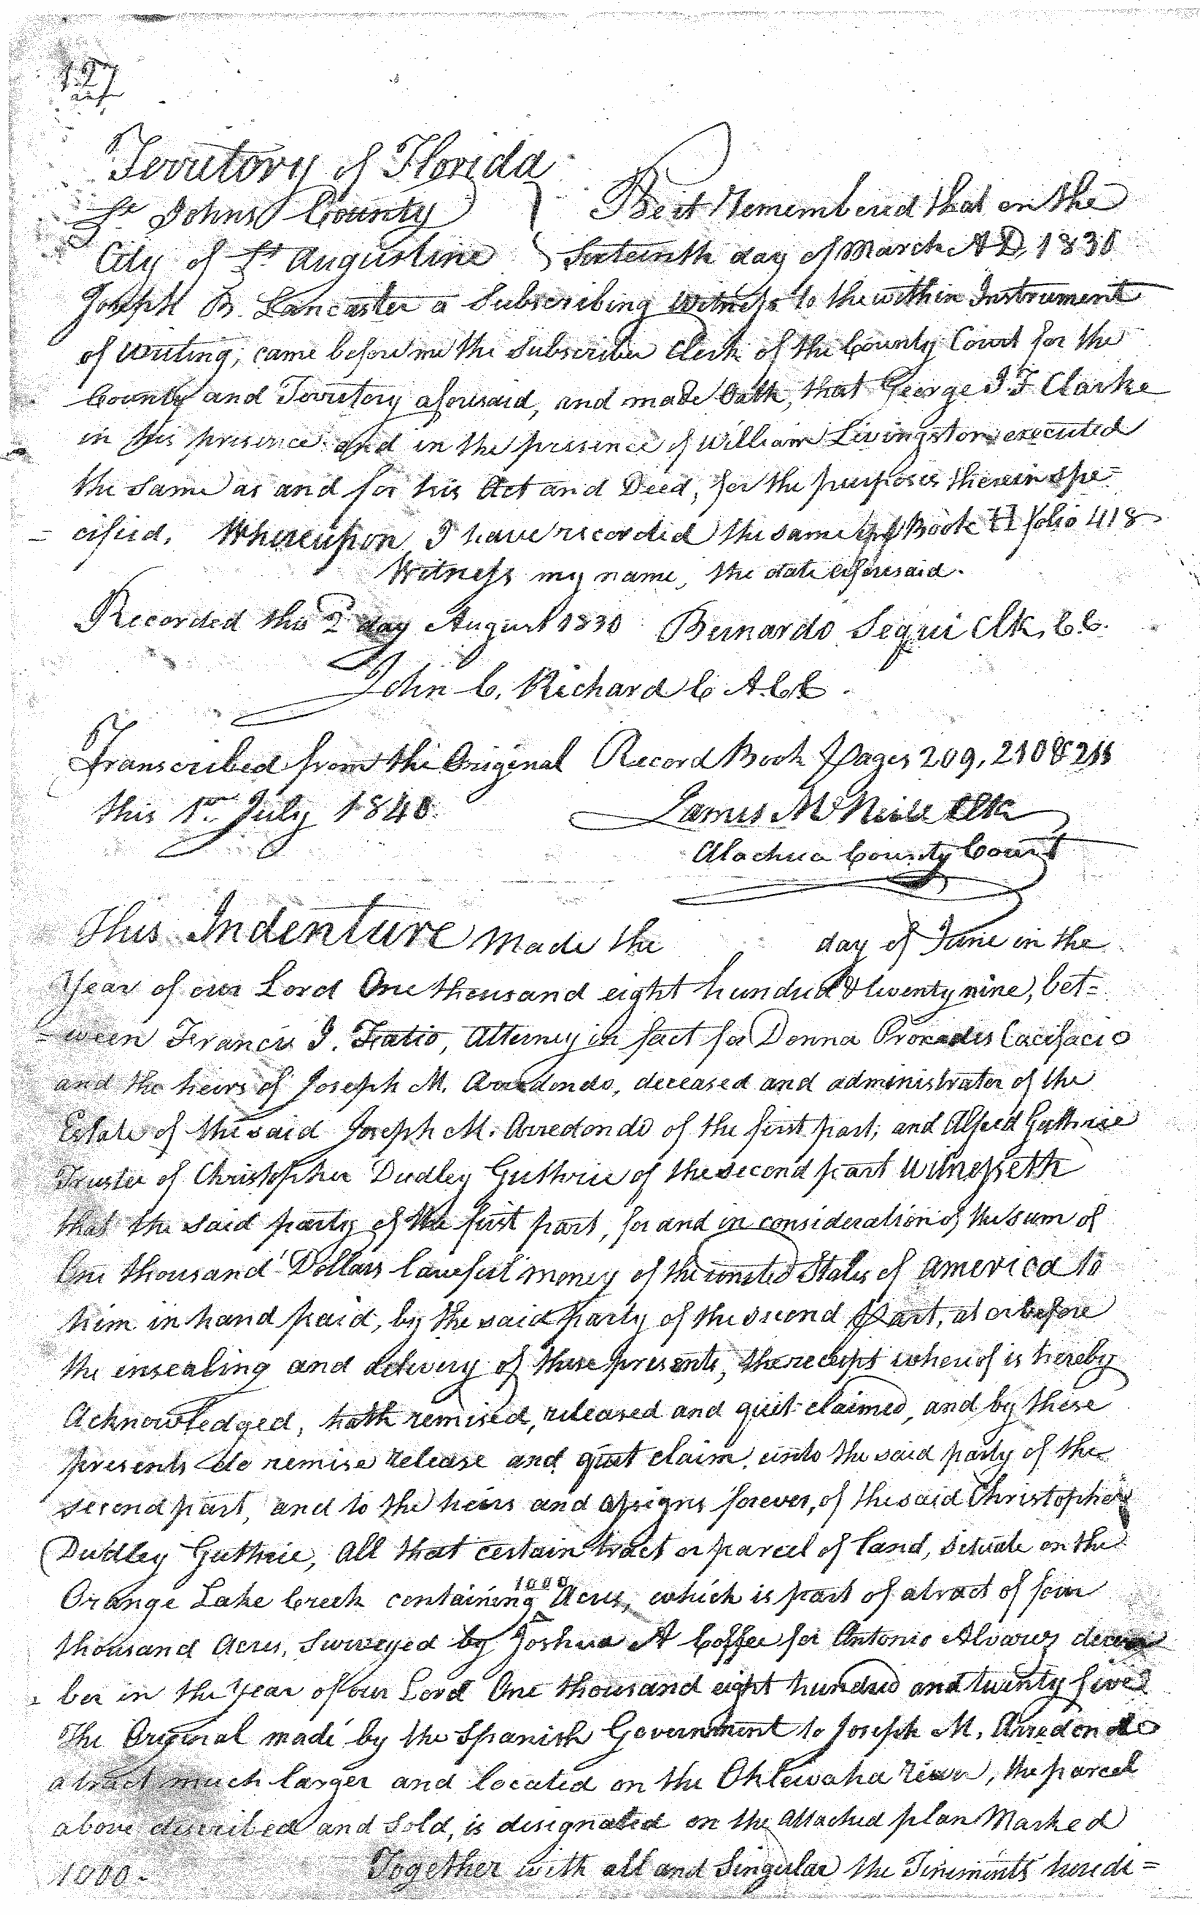 127
Territory of Florida
St Johns County } Be it Remembered that on the
City of St Augustine } Sixteenth day of March A D, 1830
Joseph B. Lancaster a Subscribing Witness to the within Instrument
of writing, came before me the Subscriber Clerk of the County Court for the
County and Territory aforesaid, and made Oath, that George J. F. Clarke
in his presence and in the presence of William Livingston executed
the same as and for his Act and Deed, for the purposes therein spe=
=cified. Whereupon I have recorded the same in Book H folio 418
Witness my name, the date aforesaid.
Recorded this 2 day August 1830 Bernardo Segui Clk, C. C.
John C. Richard C A. C C.
Transcribed from the Original Record Book Pages 209, 210 & 211
this 1st July 1840. James McNeill Clk
Alachua County Court
This Indenture made the day of June in the
Year of our Lord One thousand eight hundred & twenty nine, bet=
=ween Francis J. Fatio, Attorney in fact for Donna Procades Cacifacio
and the heirs of Joseph M. Arredondo, deceased and administrator of the
Estate of the said Joseph M. Arredondo of the first part; and Alfred Guthrie
Trustee of Christopher Dudley Guthrie of the second part Witnesseth
that the said party of the first part, for and in consideration of the sum of
One thousand Dollars lawfull money of the united States of America to
him in hand paid, by the said party of the second Part, at or before
the insealing and delivery of these presents, the receipt whereof is hereby
Acknowledged, hath remised, released and quit claimed, and by these
presents do remise release and quit claim unto the said party of the
second part, and to the heirs and assigns forever, of the said Christopher
Dudley Guthrie, All that certain tract or parcel of land, situate on the
Orange Lake Creek containing 1000 Acres, which is part of a tract of four
thousand Acres, Surveyed by Joshua A Coffee for Antonio Alvarez decem
ber in the Year of our Lord One thousand eight hundred and twenty five
The Original made by the Spanish Government to Joseph M. Arredondo
a tract much larger and located on the Ohlewaha River, the parcel
above described and sold, is designated on the attached plan Marked
1000. Together with all and Singular the Tinements heredi=